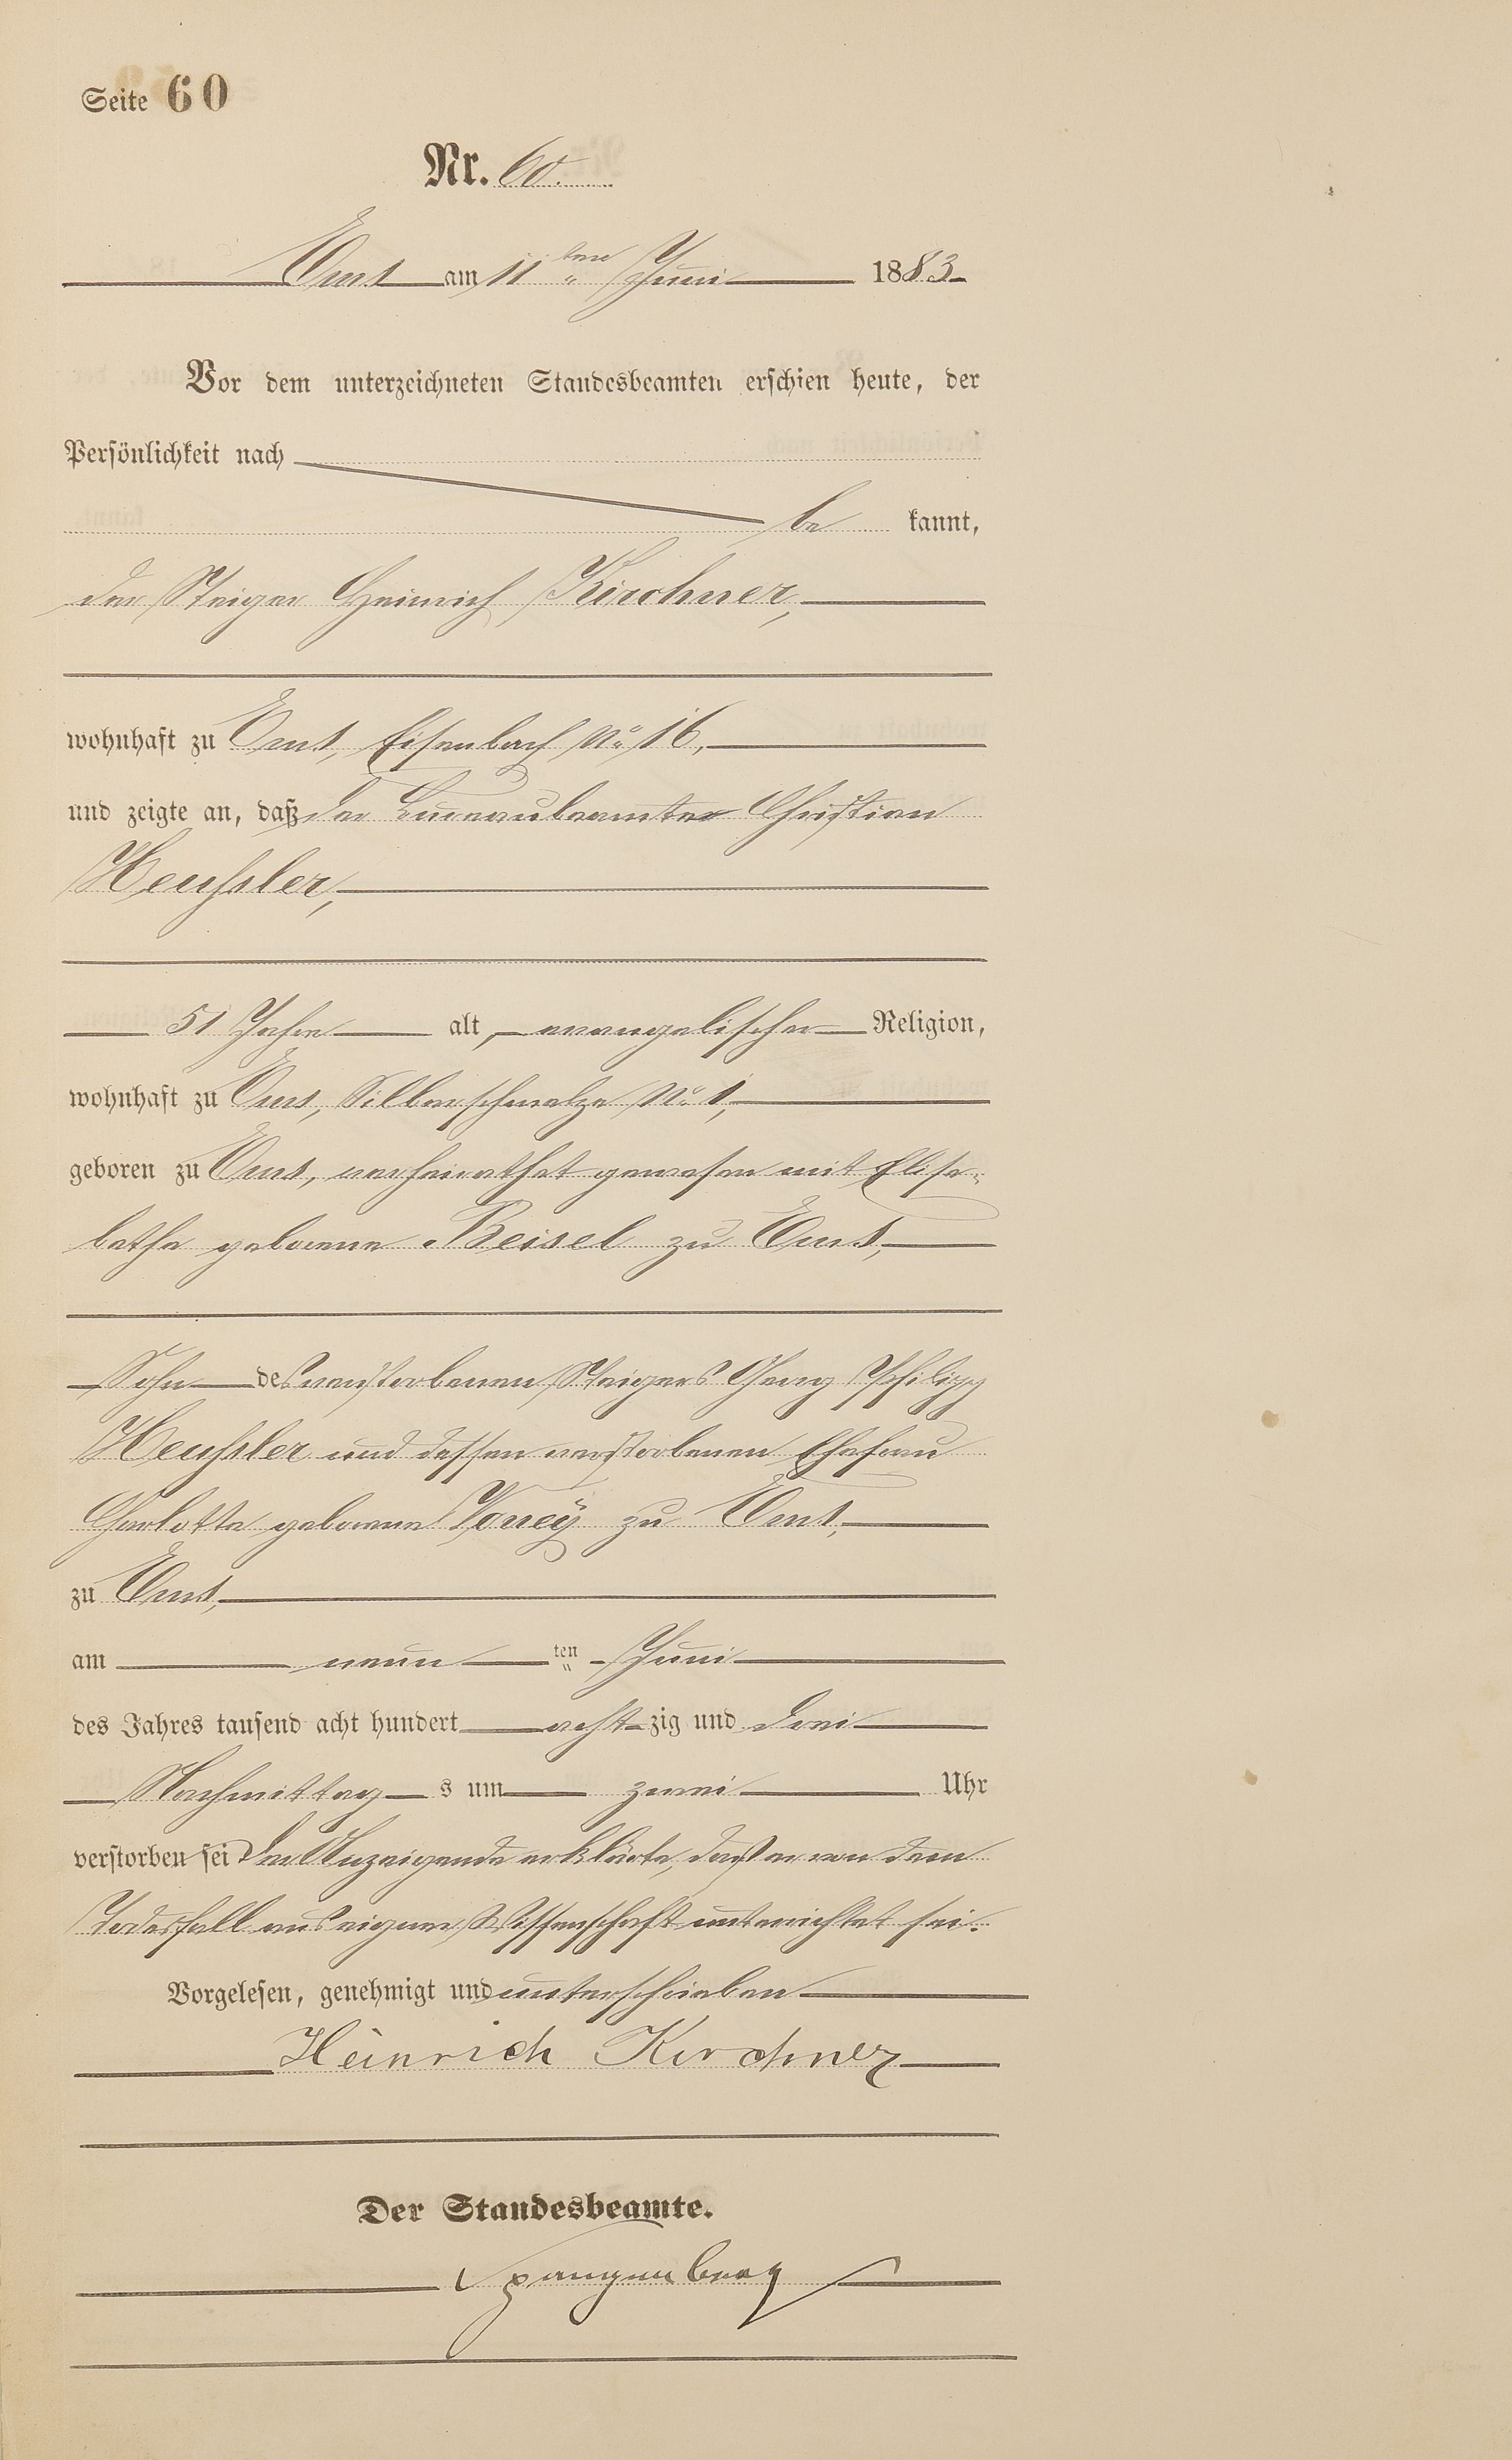 Seite 60
Nr. 60.
Ems am 11ten Juni 1883
Vor dem unterzeichneten Standesbeamten erschien heute, der
Persönlichkeit nach
be kannt,
der Steiger Heinrich Kirchner,
wohnhaft zu Ems, Eisenbach No 16,
und zeigte an, daß der Bureaubeamter Christian
Heuſsler,
51 Jahre alt, evangelischer Religion,
wohnhaft zu Ems, Silberschmelze No 1,
geboren zu Ems, verheirathet gewesen mit Elisa-
betha geborene Beisel zu Ems,
Sohn des verstorbenen Steigers Georg Philipp
Heuſsler und dessen verstorbenen Ehefrau
Charlotta geborene zu Ems,
zu Ems,
am neun ten Juni
des Jahres tausend acht hundert acht zig und drei
Nachmittag s um zwei Uhr
verstorben sei Der Anzeigende erklärte, daß er von dem
Todesfall aus eigener Wissenschaft unterrichtet sei.
Vorgelesen, genehmigt und unterschrieben
Heinrich Kirchner
Der Standesbeamte.
Spangenberg